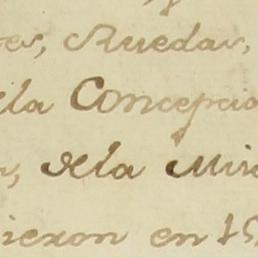 es, Ruedas,
ela Concepcio
s, dela Mise
ieron en 15